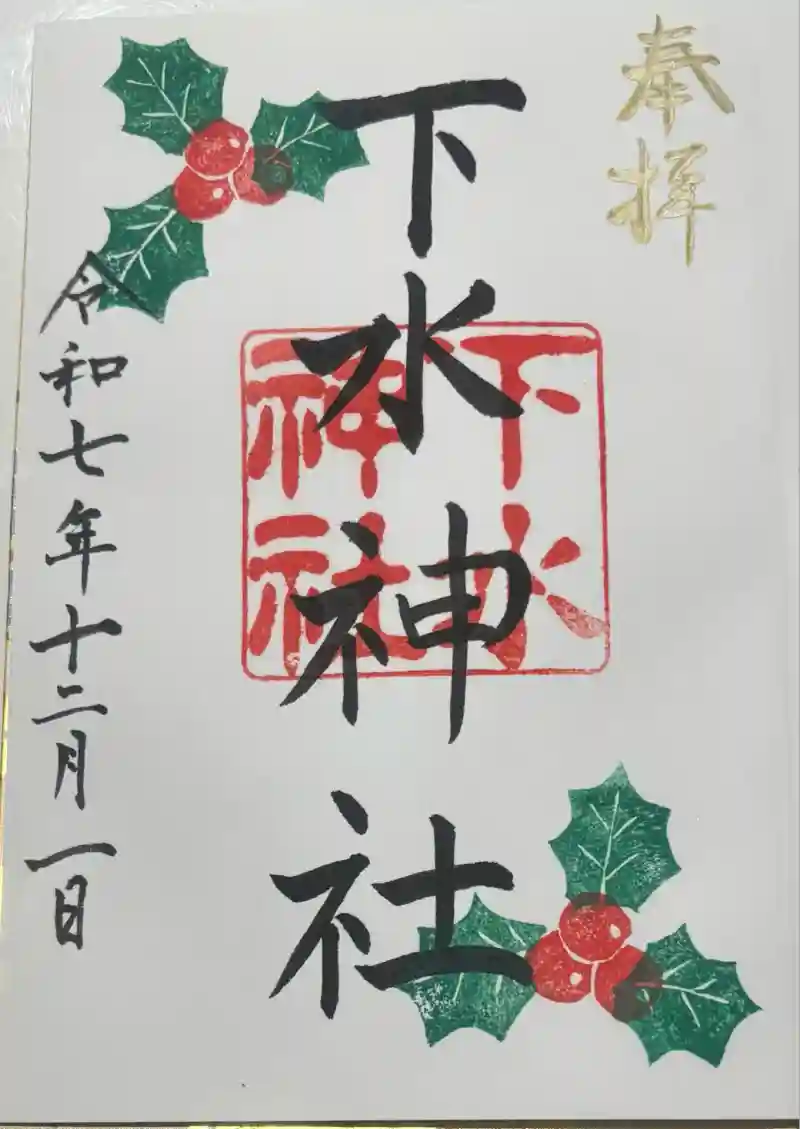 奉拝
下水神社
下水
神社
令和七年十二月一日